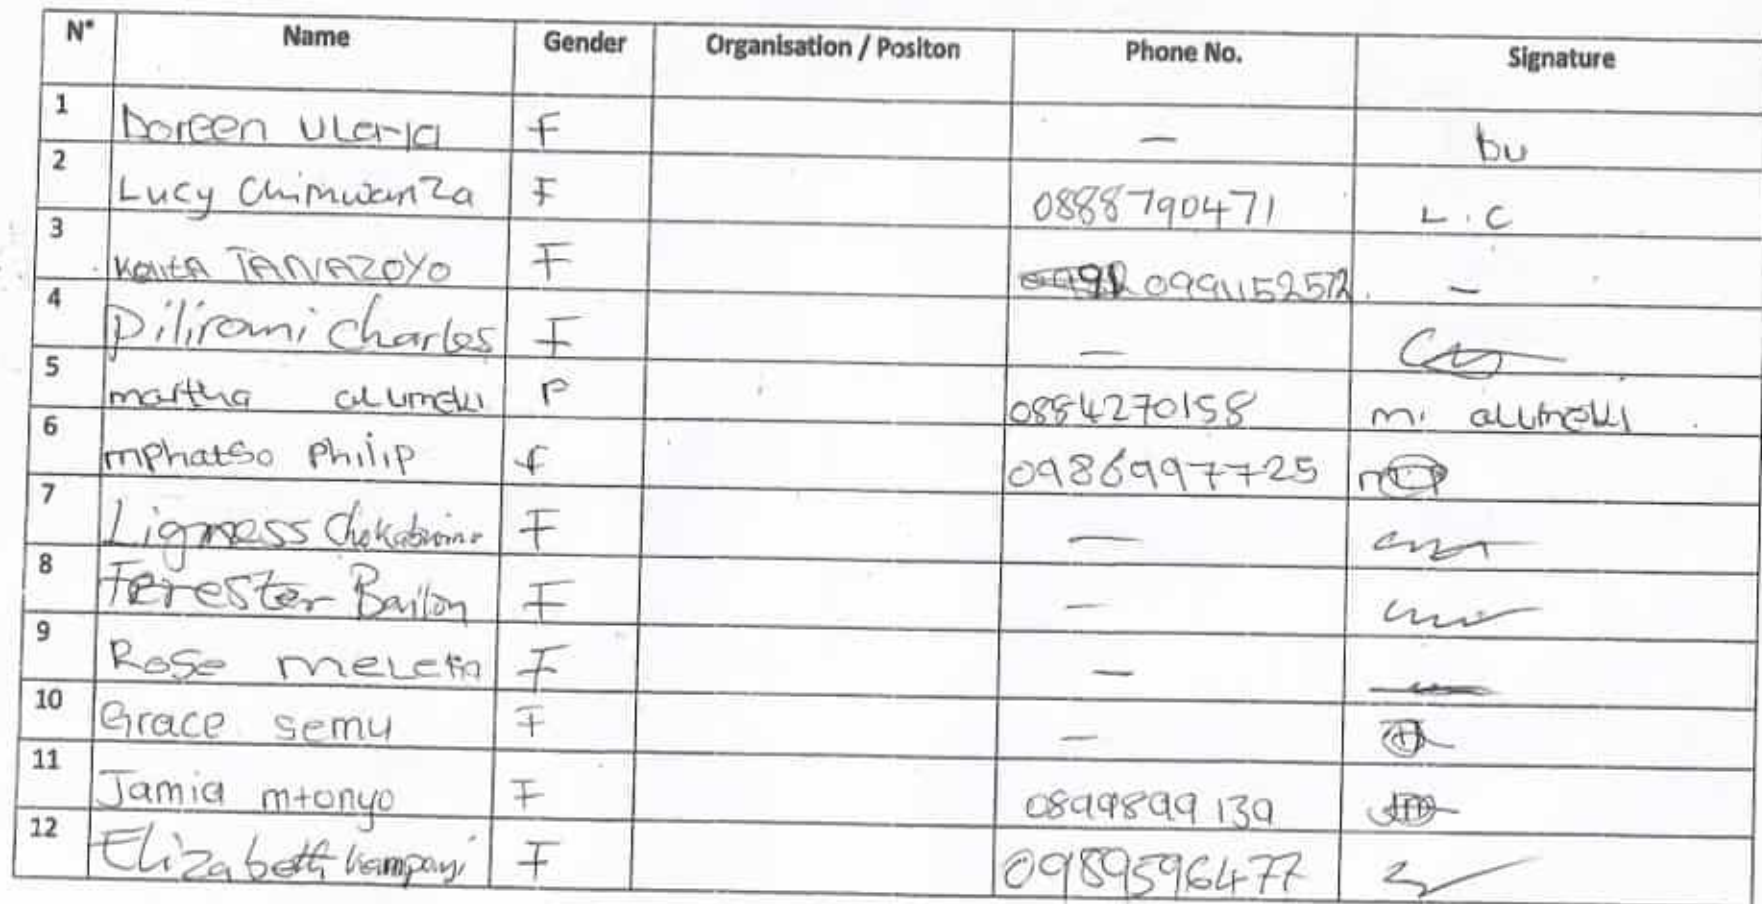 N° Name Gender Organisation / Positon Phone No. Signature
1 Doreen F — bu
2 Lucy Chimwanza F 0888790471 L.C
3 TANAZOYO F 0991152572 —
4 Dilirani Charles F —
5 martha alumeki P 0884270158 m. alumeki
6 mphatso Philip f 0986997725
7 Ligness F —
8 Ferester Bailon F —
9 Rose F —
10 Grace semu F —
11 Jamia mtonyo F 0899899139
12 Elizabeth kampani F 0989596477